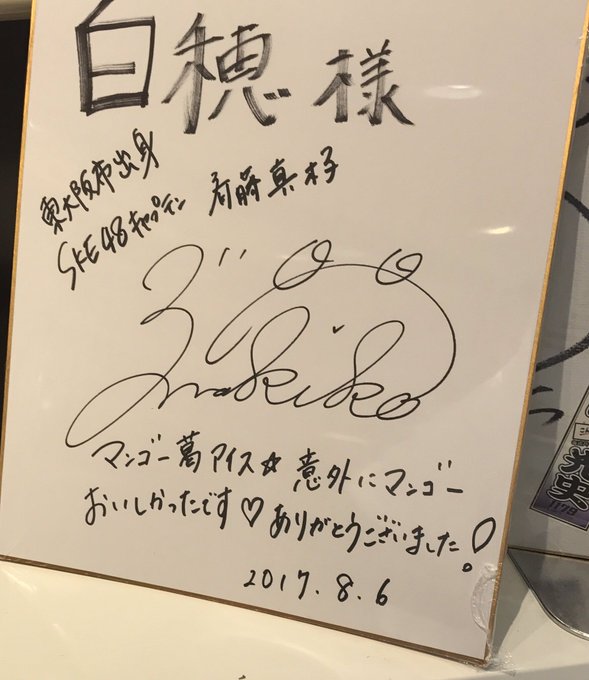 白穂様
東大阪市出身
SKE48キャプテン 斉藤真木子
makiko
マンゴー葛アイス☆ 意外にマンゴー
おいしかったです♡ ありがとうございました!
2017.8.6